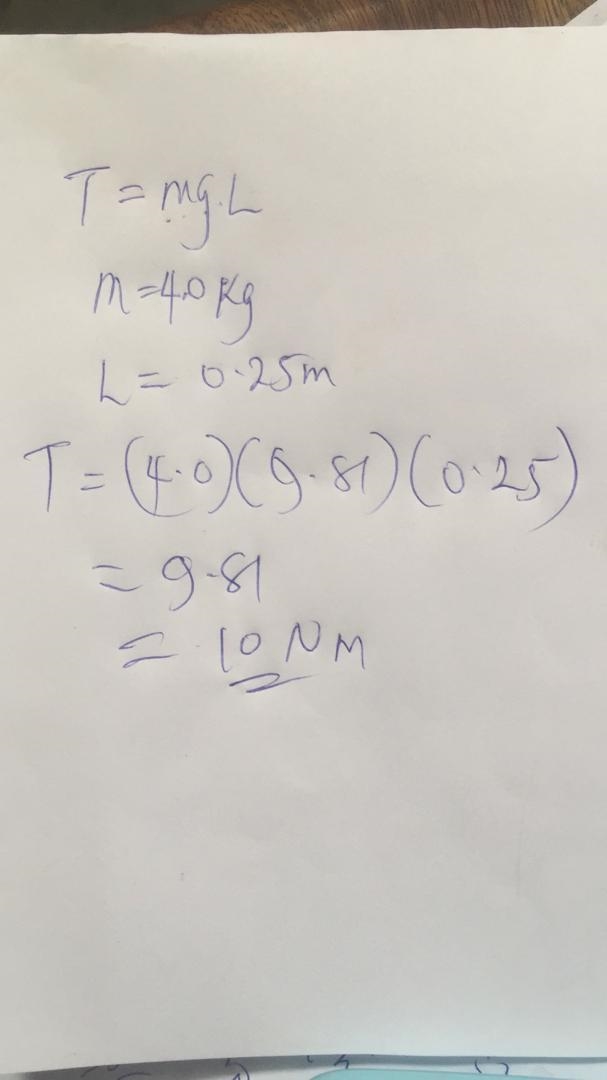 T = mg.L
m = 4.0 Kg
L = 0.25m
T = (4.0)(9.81)(0.25)
= 9.81
= 10 NM